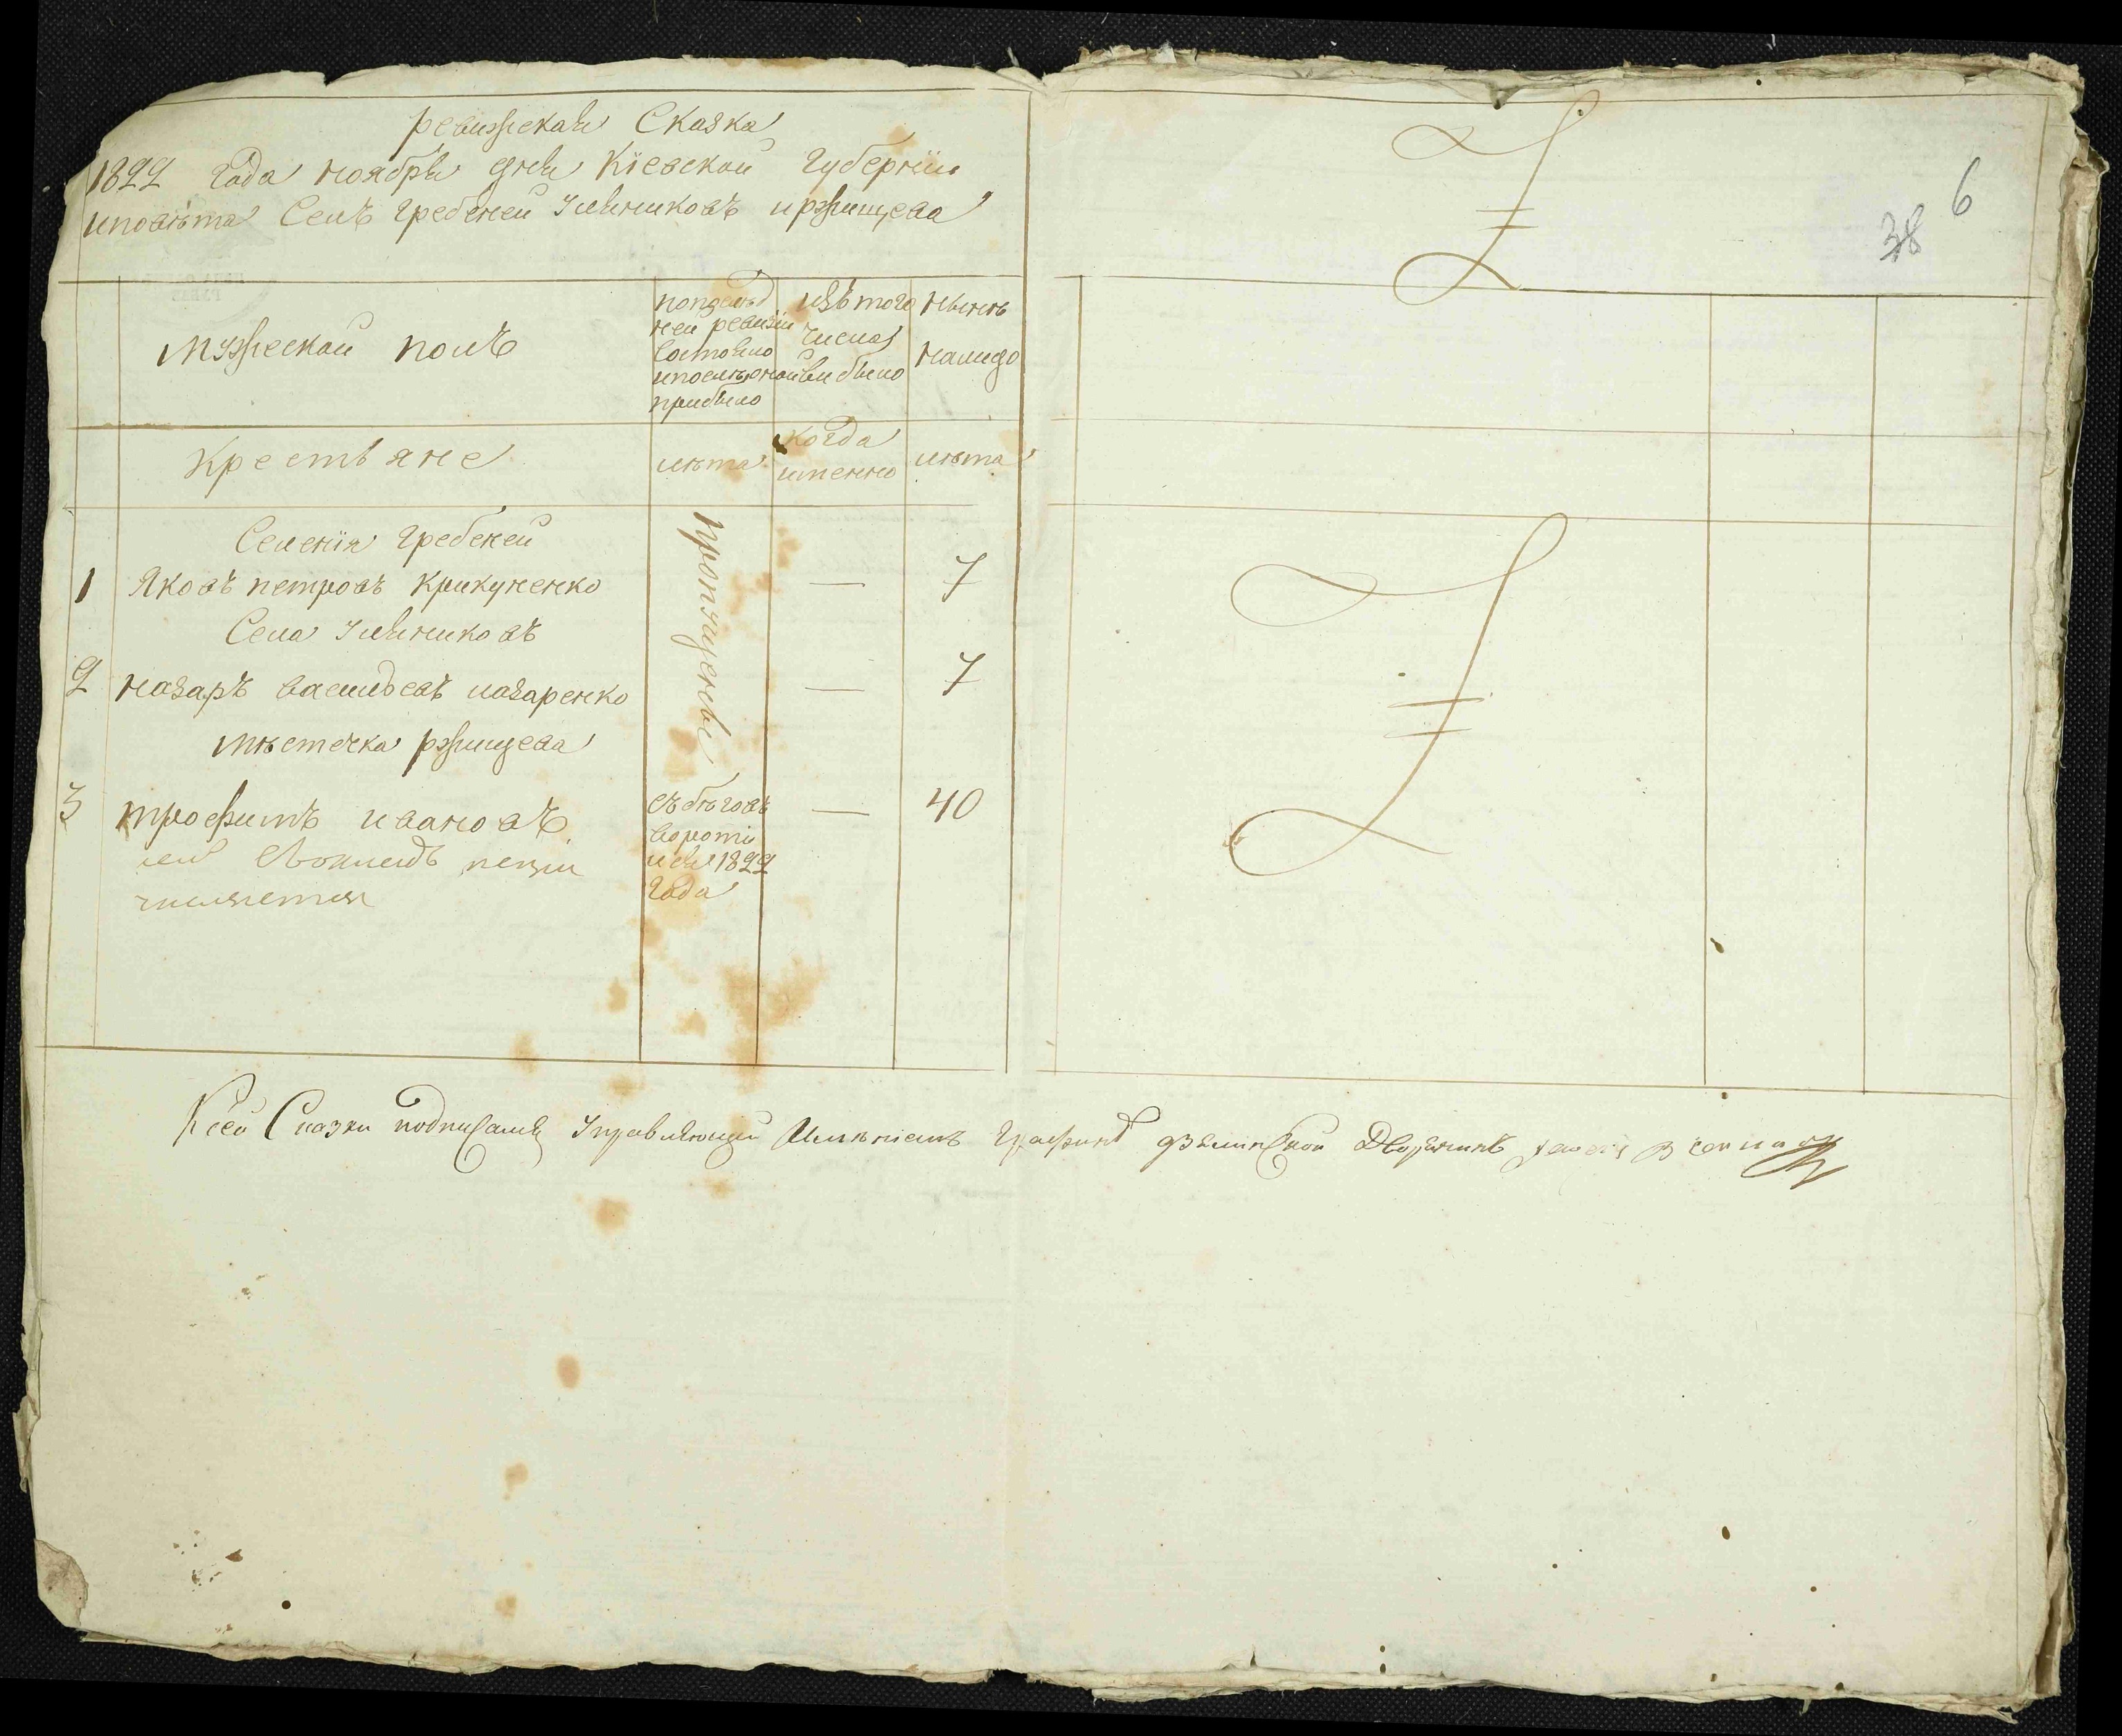 Ревижская Сказка
1822 Года Ноября дня Кіевской Губерніи
и повѣта Селъ Гребеней Уляниковъ и ржищева
мужеской полъ
попослѣд
ней ревизіи
Состояло
и после оной
прибыло
изъ того
числа
выбыло
Нынѣ
налицо
Крестьяне
лѣта
когда
именно
лѣта
Селенія Гребеней
1 Яковъ петровъ Крикуненко — 7
Села Уляниковъ
2 назаръ васильевъ назаренко — 7
пропущены
мѣстечка ржищева
3 трофимъ ивановъ — 40
числяется
съ бѣговъ
вороти
лся 1822
Года
К сей Сказки подписался Управляющий Имѣніемъ Графинѣ дзялинской Дворянинъ
38 6